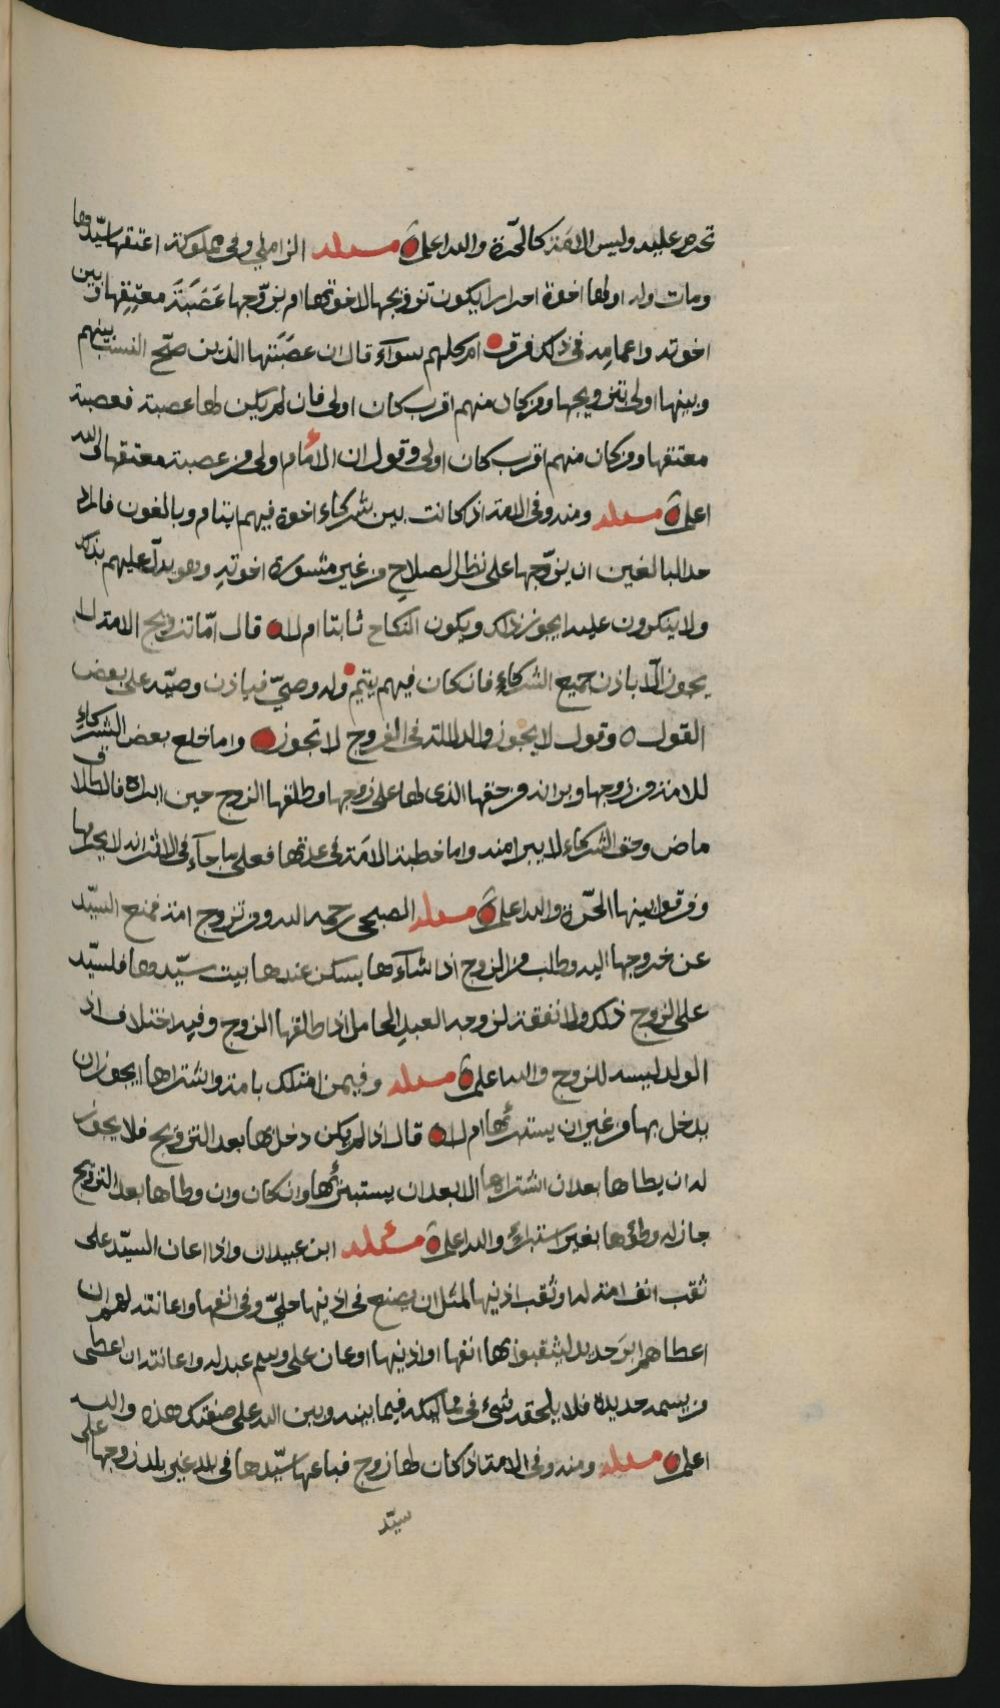 تحرم عليه وليس الامة كالحرة والله اعلم مسئلة الزاملي وفي مملوكة اعتقها سيدها
ومات وله اولها اخوة احرار ايكون تزويجها لاخوتها ام يزوجها عَصَبَةُ معتِقِها وبين
اخوته واعمامه في ذلك فرق ام كلهم سوآء قال ان عصبتها الذين صح النسب بينهم
وبينها اولى بتزويجها ومن كان منهم اقرب كان اولى فان لم يكن لها عصبة فعصبة
معتقها ومن كان منهم اقرب كان اولى وقول ان الامام اولى من عصبة معتقها والله
اعلم مسئلة ومنه وفي الامة اذ كانت بين شركاء اخوة فيهم ايتام وبالغون فاراد
احد البالغين ان يزوجها على نظر الصلاح من غير مشورة اخوته وهو يدا عليهم بذلك
ولا ينكرون عليه ايجوز ذلك ويكون النكاح ثابتا ام لا قال امّا تزويج الامة لا
يجوز الّا باذن جميع الشركاء فان كان فيهم يتيم وله وصيّ فياذن وصيّه على بعض
القول ٥ وقول لا يجوز والدلالة في الفروج لا تجوز واما خلع بعض الشركاءِ
للامة من زوجها وبرانه من حقها الذي لها على زوجها وطلقها الزوج حين ابراه فالطلاق
ماض وحق الشركاء لا يبرا منه واما خطبة الامَة في عدتها فعلى ما جآء في الاثر انه لا يحرمها
وفرقوا بينها الحرّة والله اعلم مسئلة الصبحي رحمه الله ومن تزوج امة فمنع السيّد
عن خروجها اليه وطلب من الزوج اذا شآءها يسكن عندها بيت سيّدها فلسيّد
على الزوج ذلك ولا نفقة لزوجه العبد الحامل اذا طلقها الزوج وفيه اختلاف اذ
الولد ليسه للزوج والله اعلم مسئلة وفيمن امتلك بامة واشتراها ايجوز ان
يدخل بها من غير ان يستبرئها ام لا قال اذا لم يكن دخل بها بعد التزويج فلا يجوز
له ان يطاها بعد ان اشتراها الا بعد ان يستبرئها وان كان وان وطاها بعد التزويج
جاز له وطؤها بغير استبراءٍ والله اعلم مسئلة ابن عبيدان واذا اعان السيّد على
ثقب انف امته له او ثقب اذنيها لمثل ان يصنع في اذنيها حليّ وفي انفها واعانته لهم ان
اعطاهم ابرَ حديد ليثقبوا بها انفها او اذنيها او عان على وسم عبد له واعانته ان اعطى
من يسمه حديدة فلا يلحقه شيء في مماليكه فيما بينه وبين الله على صفتك هذه والله
اعلم مسئلة ومنه وفي الامة اذا كان لها زوج فباعها سيّدها في بلد غير بلد زوجها على
سيّد